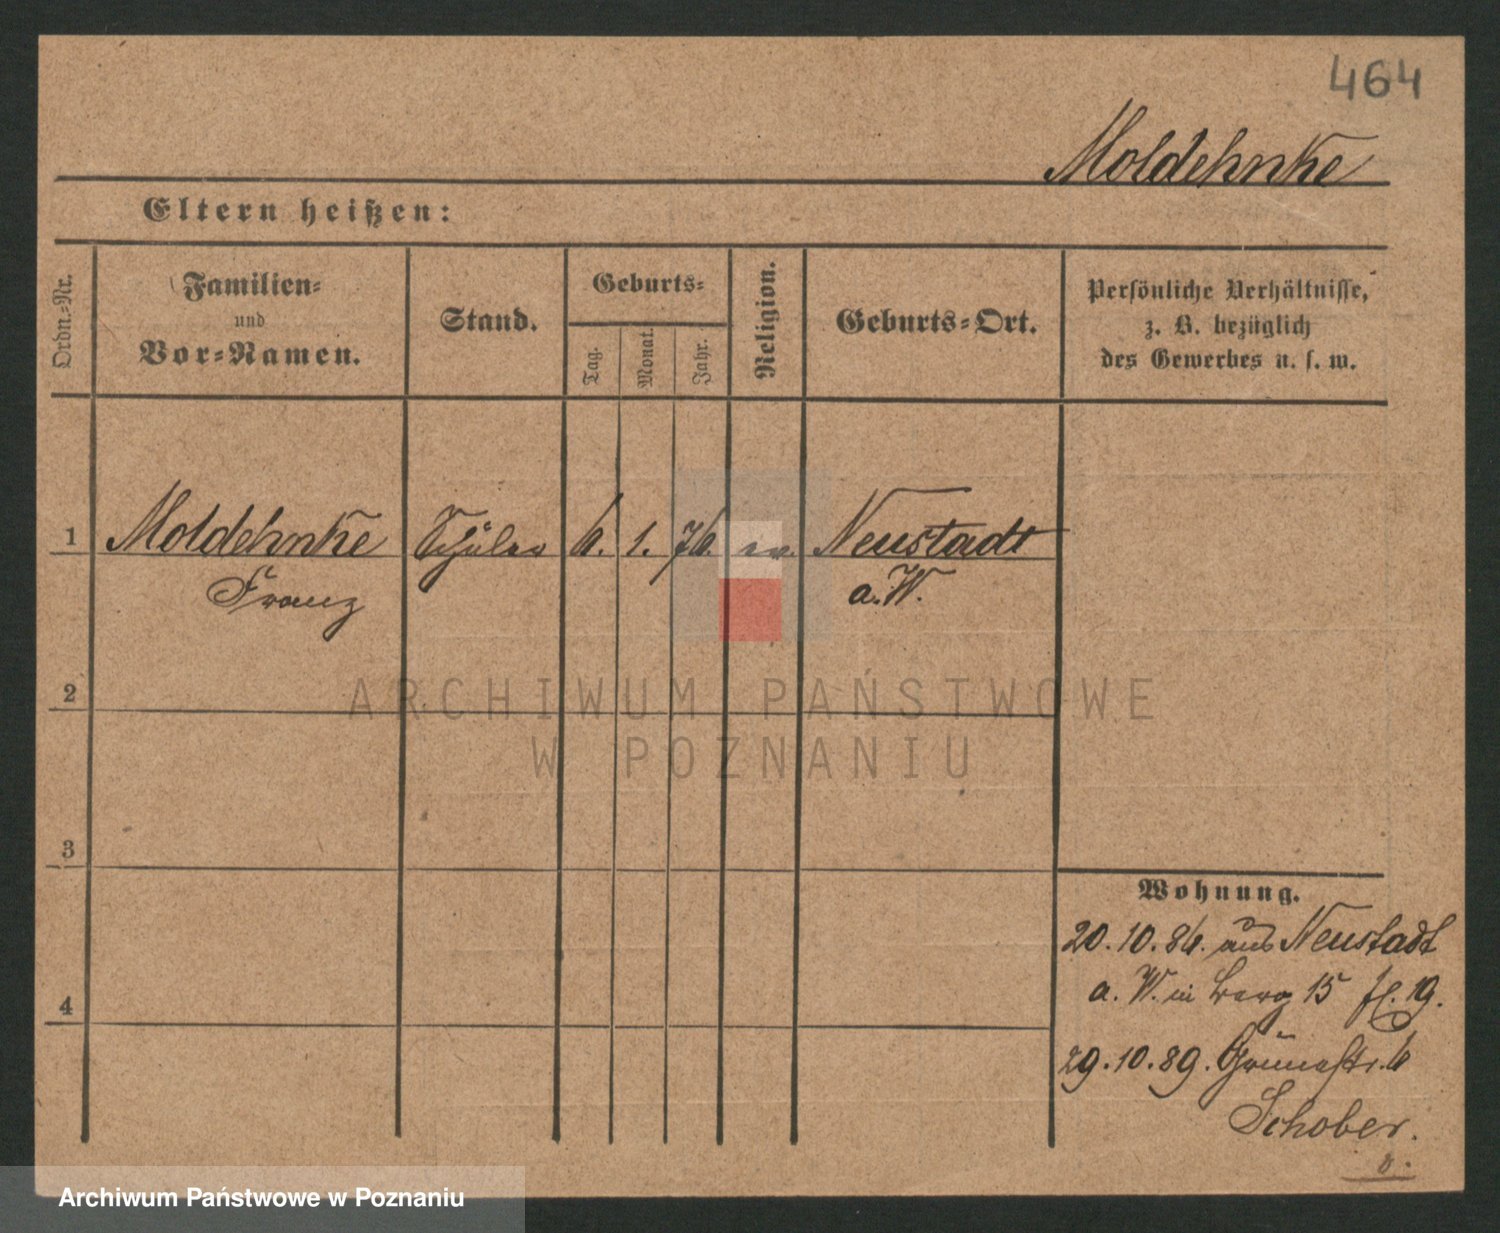 464
Moldehnke
Eltern heißen:
Ordn.-Nr.
Familien-
und
Vor-Namen.
Stand.
Geburts-
Tag.
Monat.
Jahr.
Religion.
Geburts-Ort.
Persönliche Verhältnisse,
z. B. bezüglich
des Gewerbes u. s. w.
1 Moldehnke Schüler 6. 1. 76. ev. Neustadt
Franz a. W.
2
ARCHIWUM PAŃSTWOWE
W POZNANIU
3
Wohnung.
20.10.86. aus Neustadt
a. W. in Berg 15
4
29.10.89. Grünestr. 6
Schober.
Archiwum Państwowe w Poznaniu